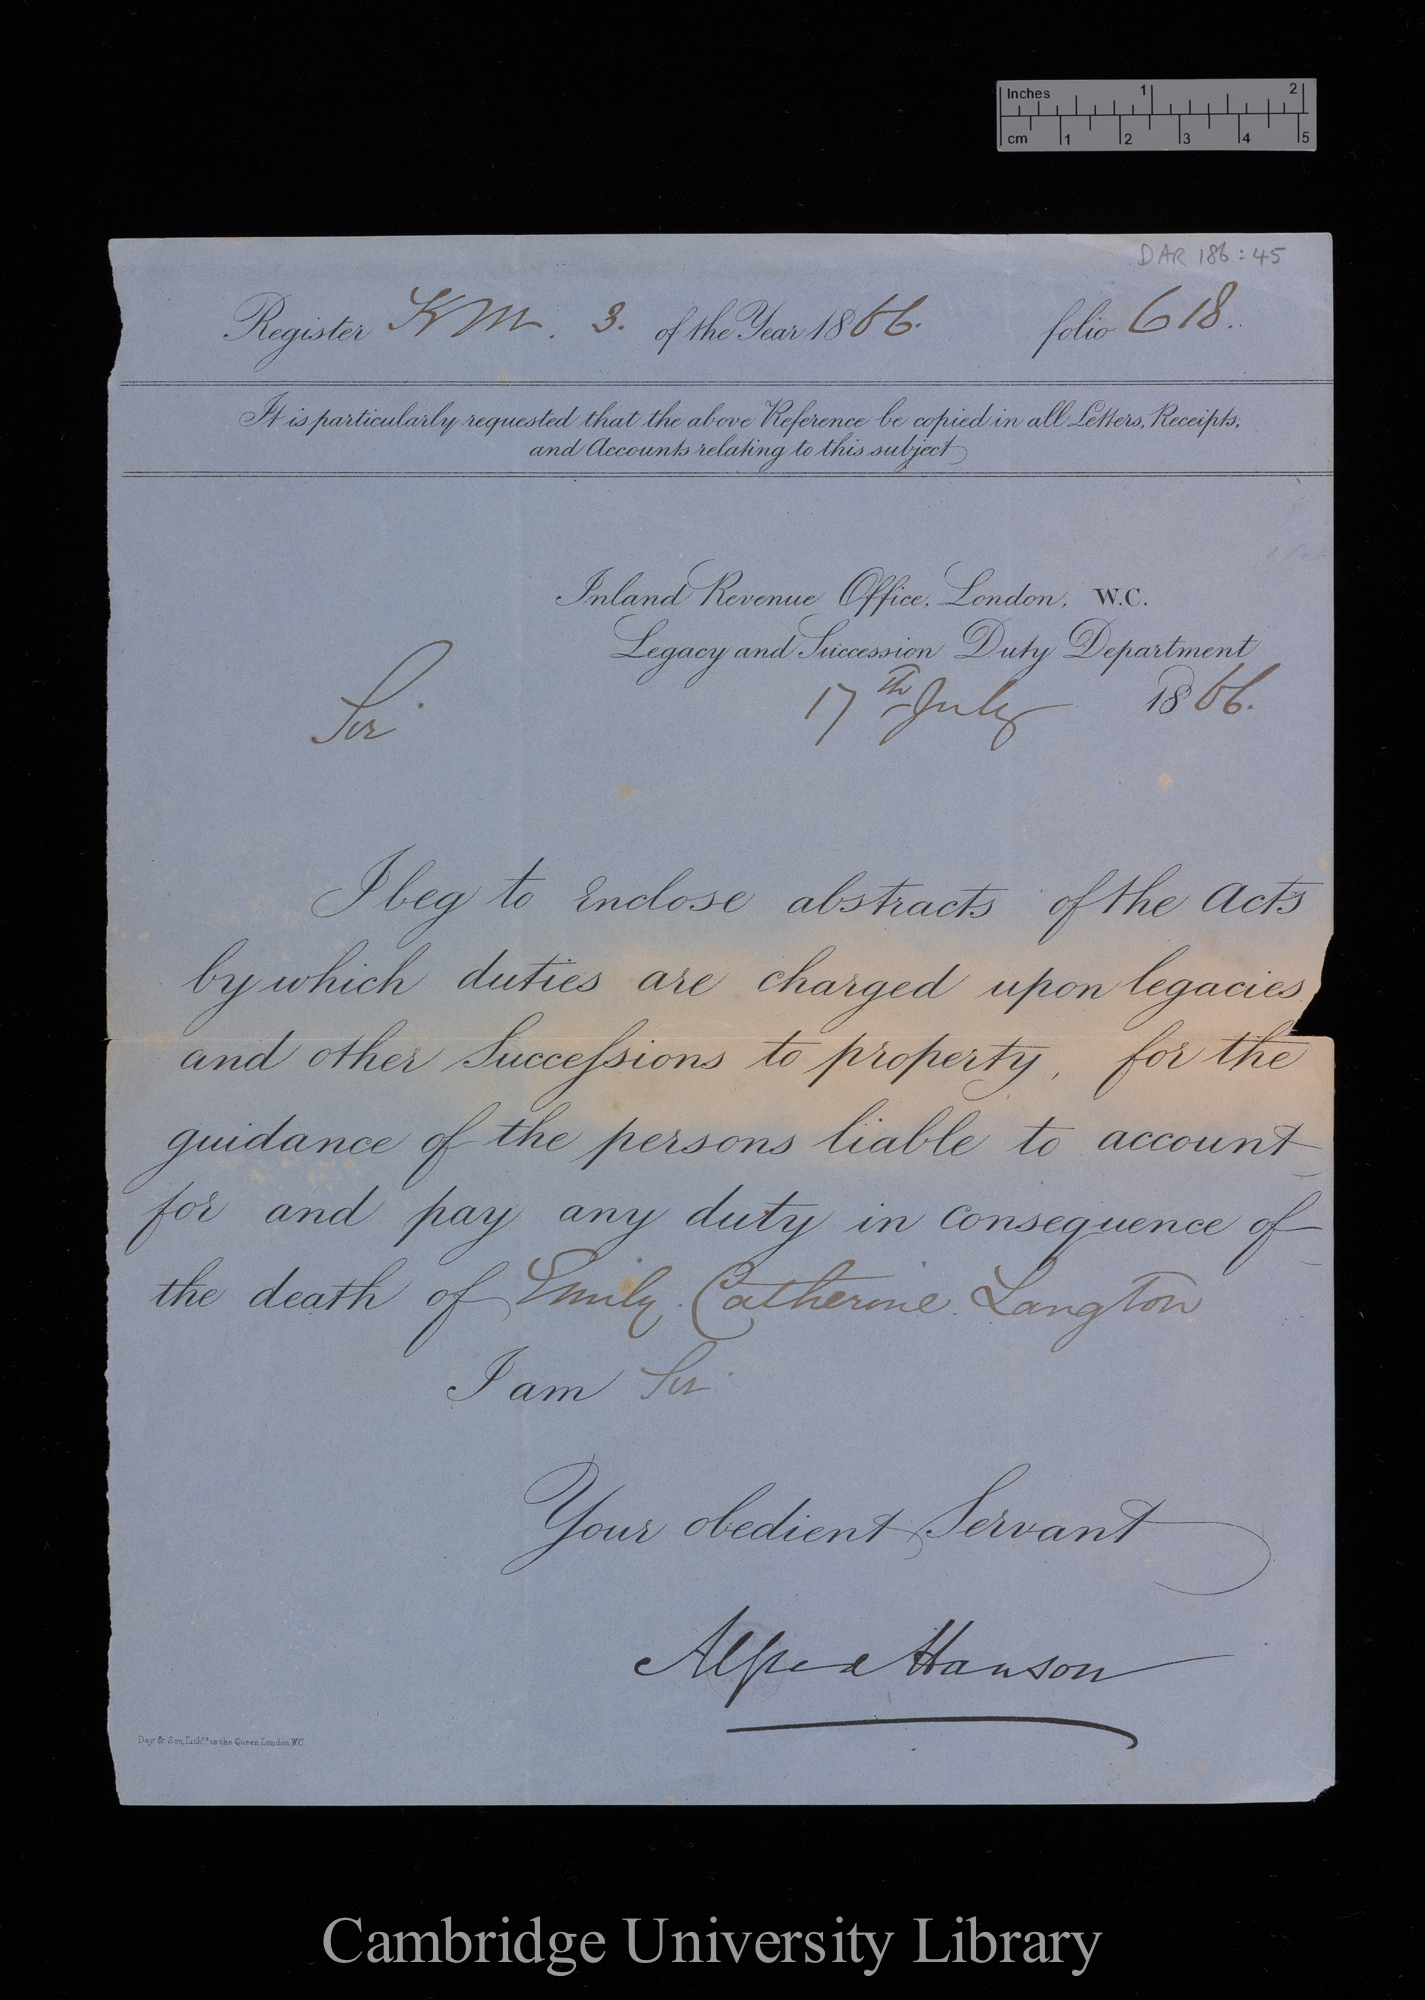 Inches 1 2
cm 1 2 3 4 5
DAR 186:45
Register KM. 3. of the Year 1866. folio 618.
It is particularly requested that the above Reference be copied in all Letters, Receipts,
and Accounts relating to this subject
Inland Revenue Office, London, W.C.
Legacy and Succession Duty Department
17th July 1866.
Sir
I beg to enclose abstracts of the Acts
by which duties are charged upon legacies
and other Succeſsions to property, for the
guidance of the persons liable to account
for and pay any duty in consequence of
the death of Emily Catherine Langton
I am Sir
Your obedient Servant
Alfred Hanson
Day & Son, Lithrs to the Queen, London, W.C.
Cambridge University Library